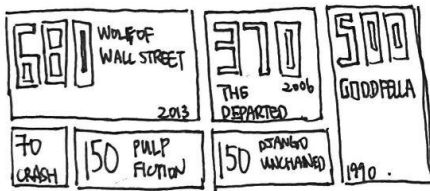 680 WOLF OF
WALL STREET
2013
370
THE 2006
DEPARTED
500
GOODFELLA
1990.
70
CRASH
150 PULP
FICTION
150 DJANGO
UNCHAINED